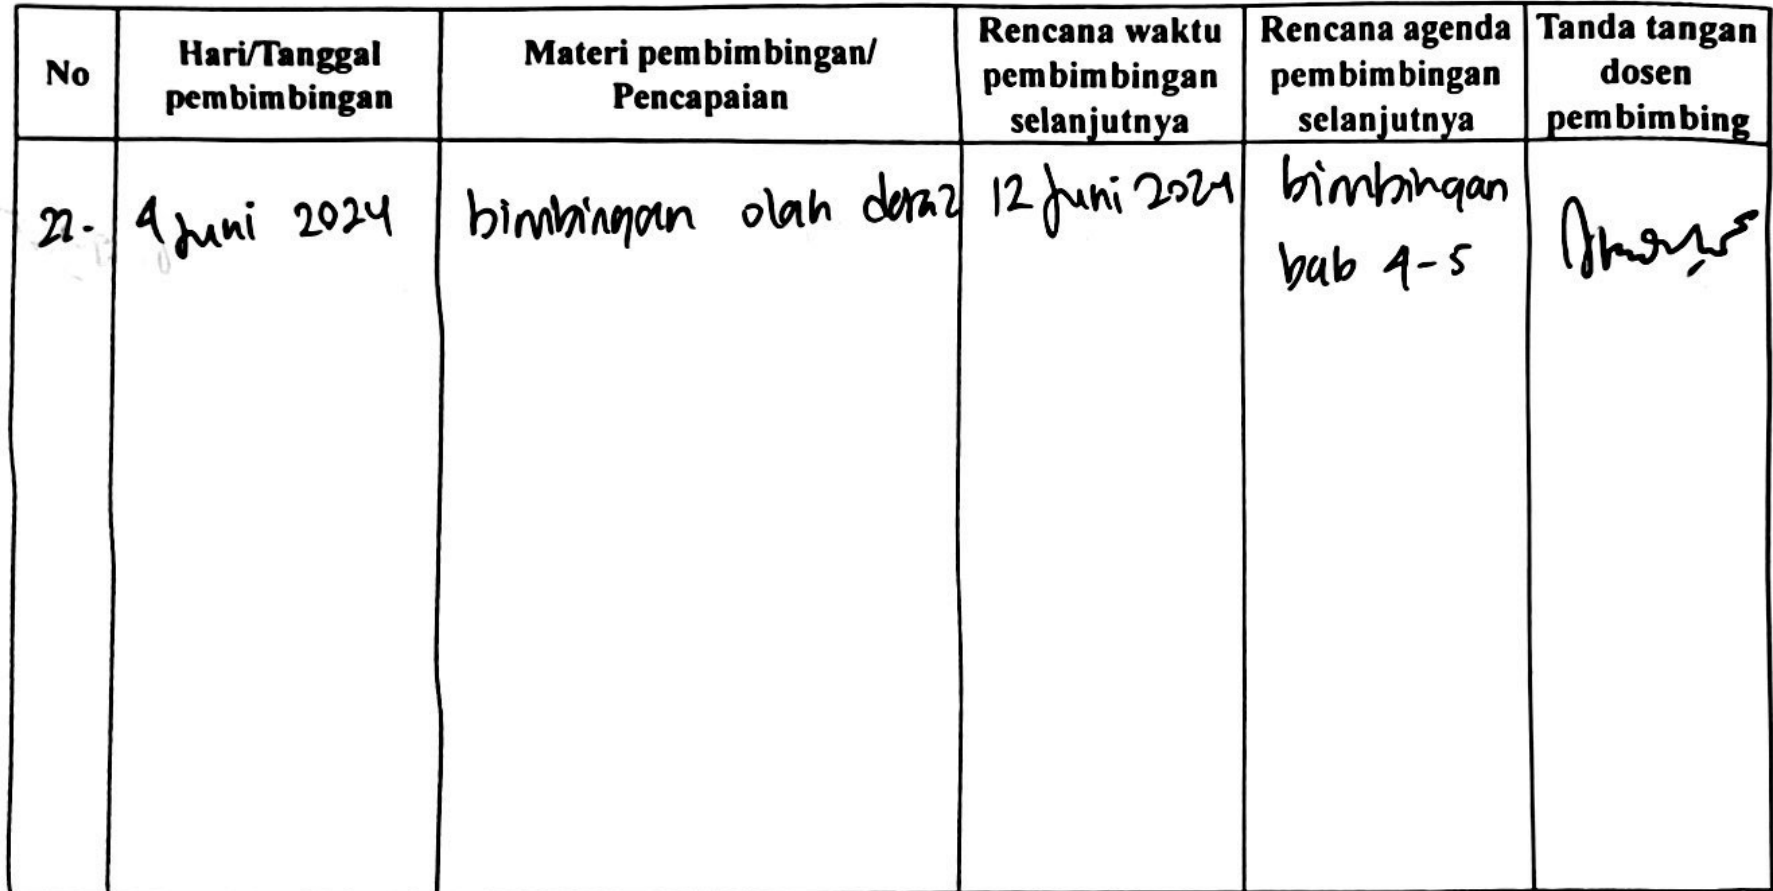 No
Hari/Tanggal
pembimbingan
Materi pembimbingan/
Pencapaian
Rencana waktu
pembimbingan
selanjutnya
Rencana agenda
pembimbingan
selanjutnya
Tanda tangan
dosen
pembimbing
22.
4 Juni 2024
bimbingan olah
12 Juni 2024
bimbingan
bab 4-5